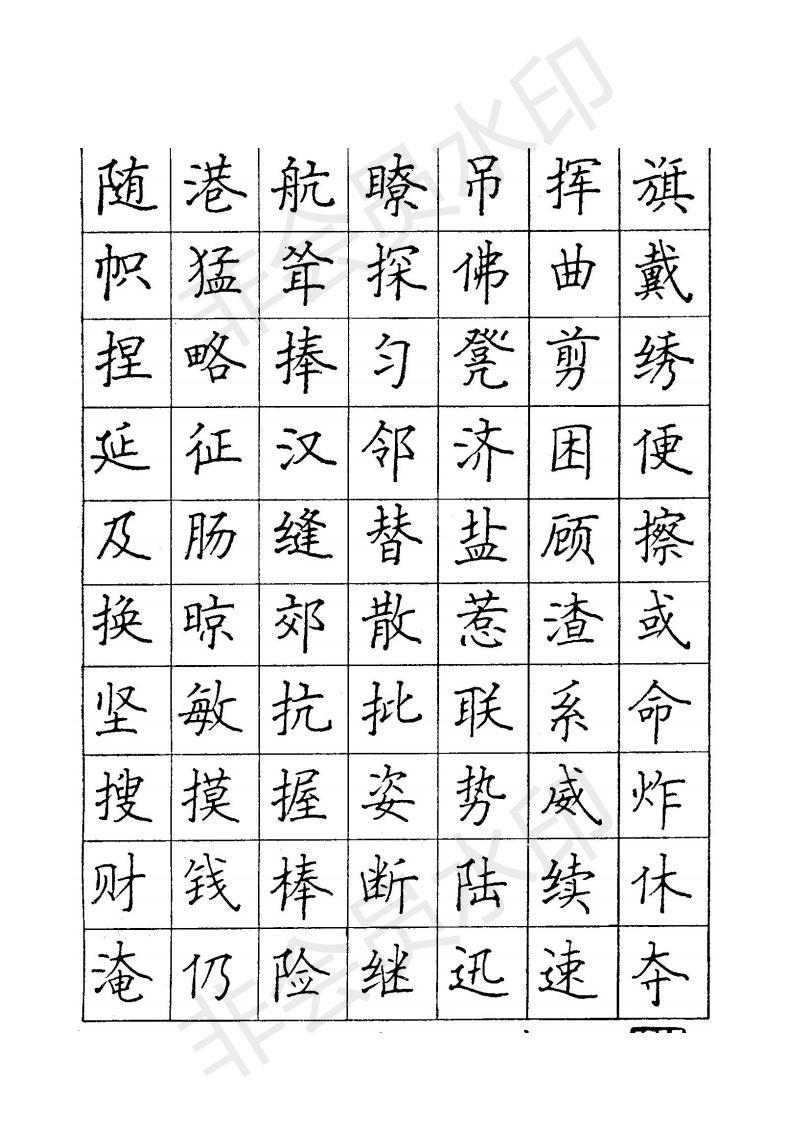 随 港 航 瞭 吊 挥 旗
帜 猛 耸 探 佛 曲 戴
捏 略 捧 匀 凳 剪 绣
延 征 汉 邻 济 困 便
及 肠 缝 替 盐 顾 擦
换 晾 郊 散 惹 渣 或
坚 敏 抗 批 联 系 命
搜 摸 握 姿 势 威 炸
财 钱 棒 断 陆 续 休
淹 仍 险 继 迅 速 夺
非会员水印
非会员水印